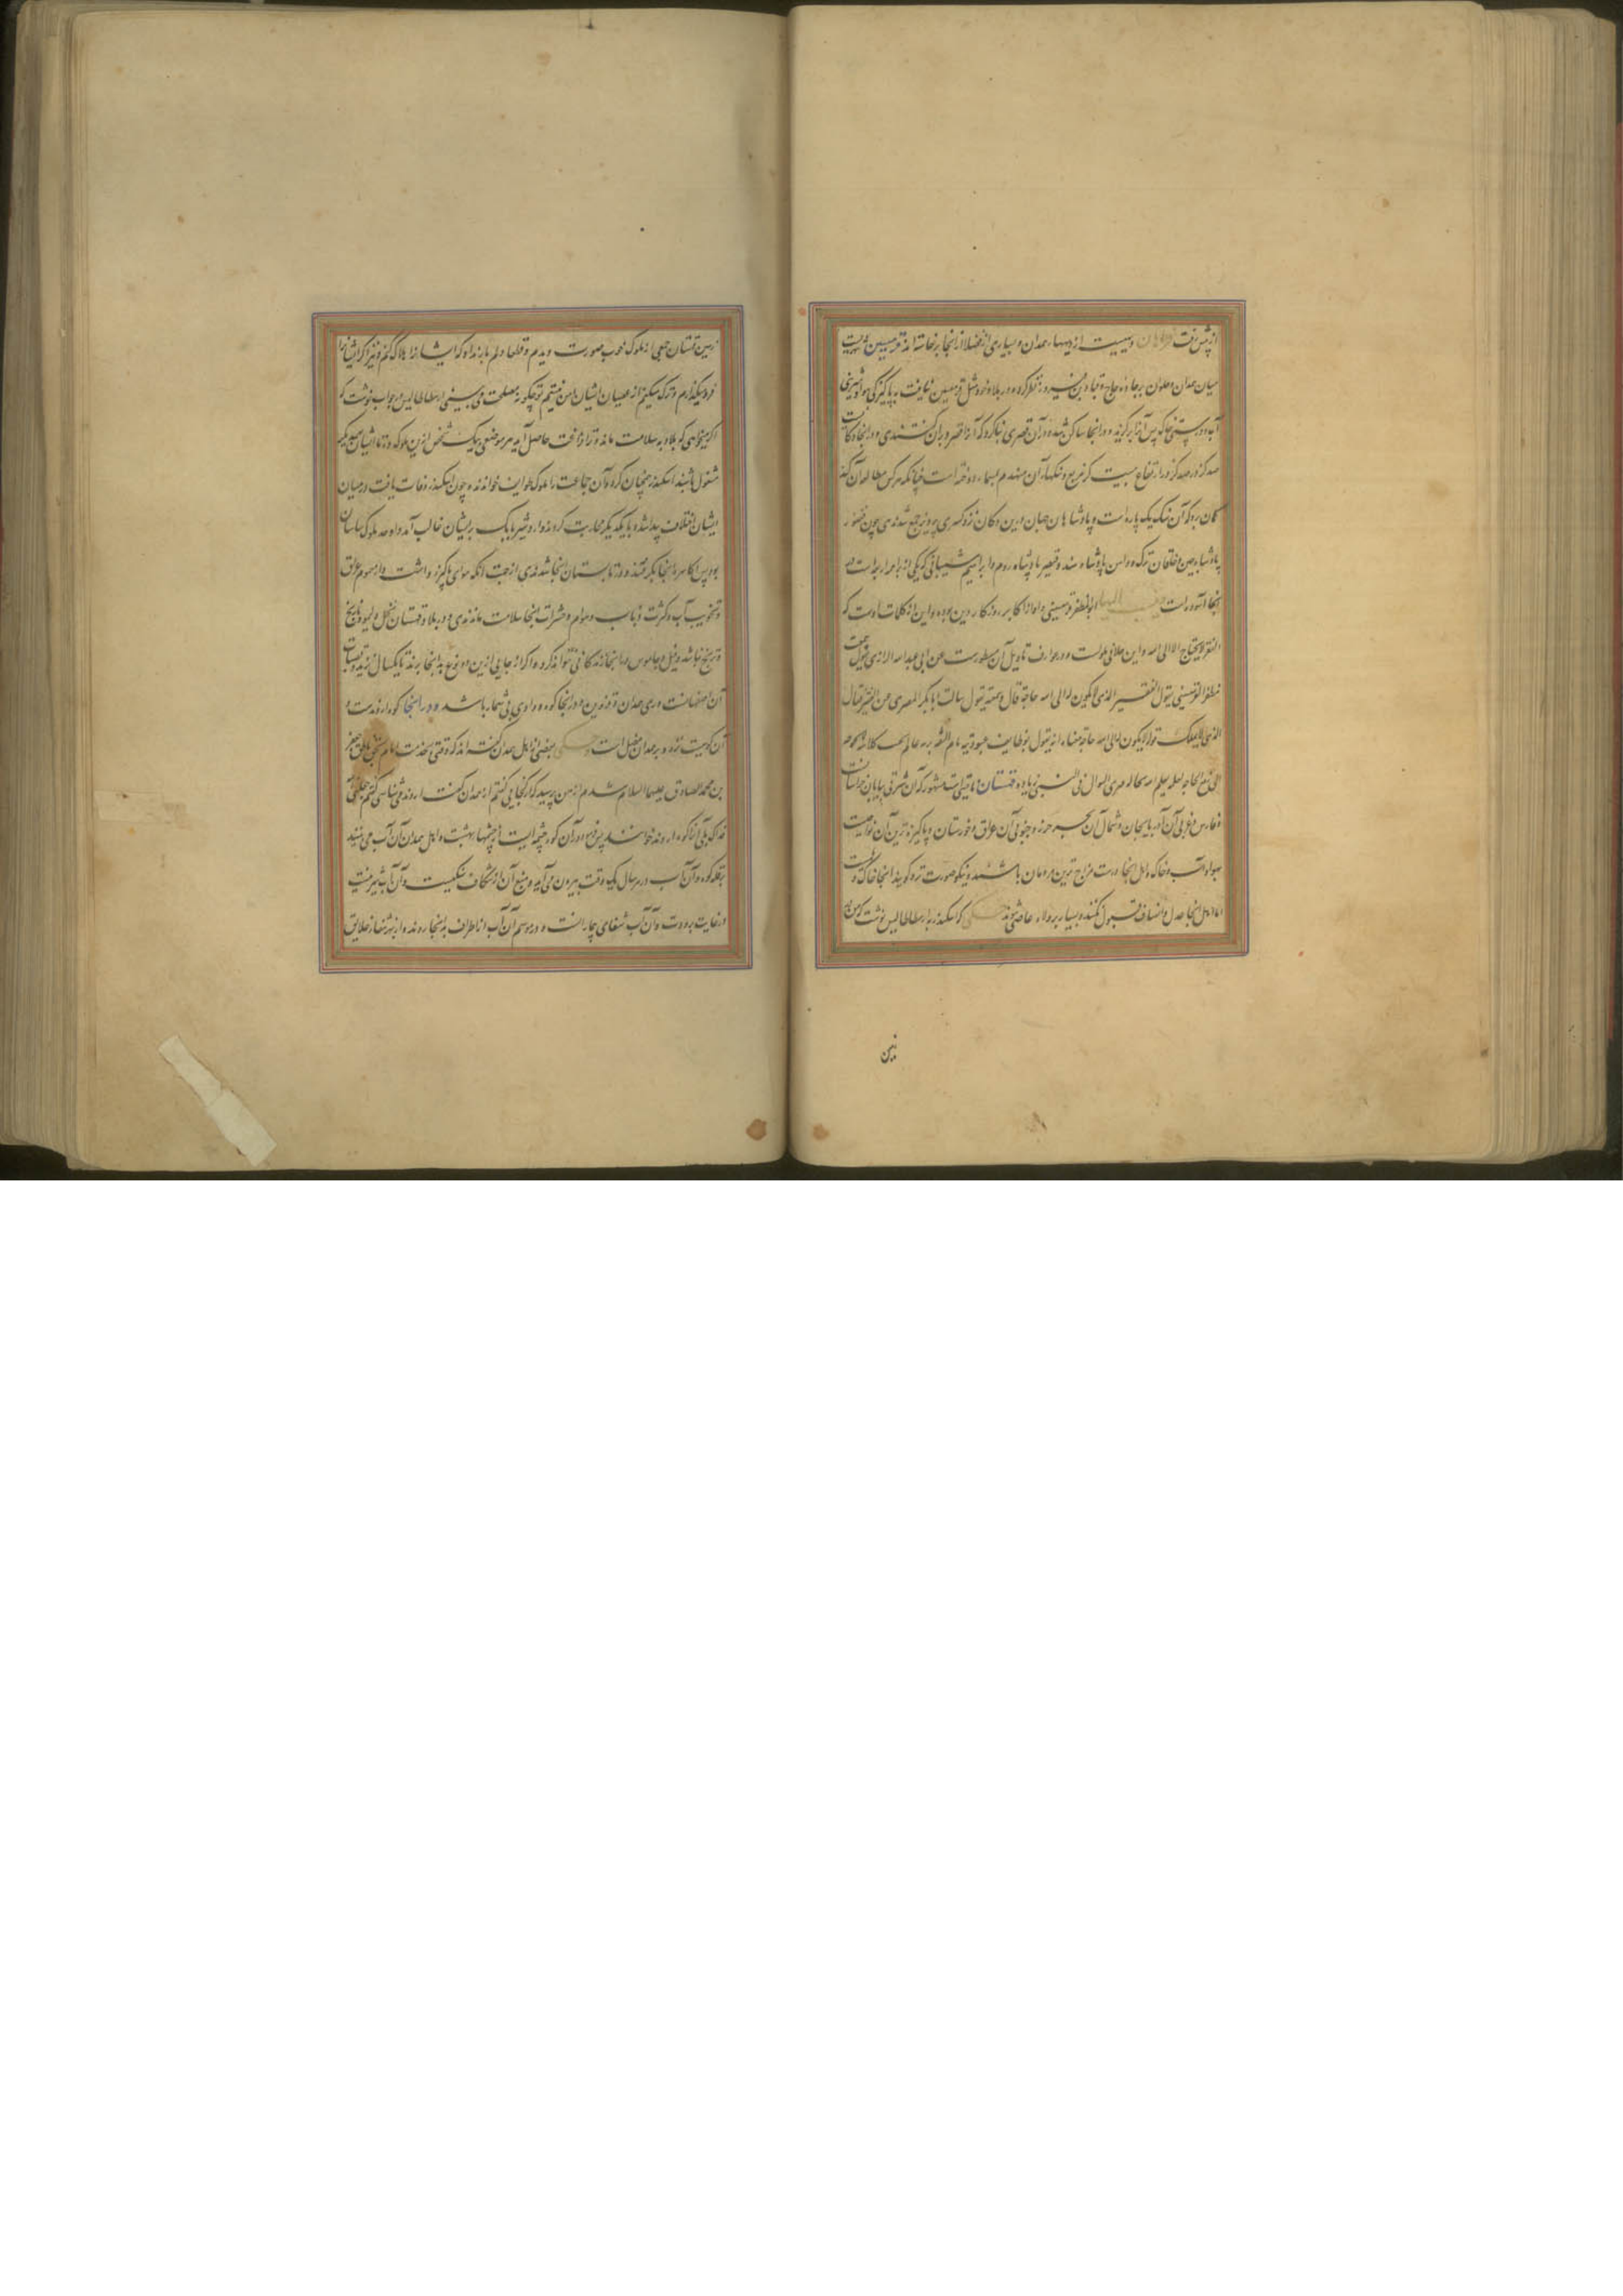 از پیش رفت فراهان دهیست از دیهاء همدان و بسیاری از فضلا از آنجا برخاسته اند قرمیسین شهریست
میان همدان و حلوان بر جاده حاج قباد بن فیروز نظر کرد و در بلاد خود مثل قرمیسین نیافت به پاکیزگی هوا و شیرینی
آب و درستی خاک پس آنرا برگزید و در آنجا ساکن شد و در آن قصری بنا کرد که آنرا قصر دزدان گفتندی و در آنجا دکانیست
صد گز در صد گز در ارتفاع بیست گز مربع و سنگهاء آن مهندم بمسمار دوخته است چنانکه هر کس مطالعه آن کند
گمان برد که آن سنگ یک پاره است و پادشاهان جهان درین دکان نزد کسری پرویز جمع شدندی چون فغفور
پادشاه چین و خاقان ترک و داهر پادشاه هند و قیصر پادشاه روم و ابراهیم شیبانی که یکی از ابدال بوده است در
آنجا آسوده است ابوالمظفر قرمیسینی و او از اکابر روزگار دین بوده و این از کلمات اوست که
الفقیر لا یحتاج الا الی الله و این خلافی بلواست و در عوارف تاویل آن مسطورست عن ابی عبدالله الرازی یقول سمعت
مظفر القرمیسینی یقول الفقیر الذی لا یکون له الی الله حاجة قال وسمعته یقول سالت ابا بکر المصری عن الفقیر فقال
الذی لا یملک قوله لا یکون له الی الله حاجة معناه انه یقول بوظایف عبودیته تام الثقة بربه عالم بحسن کلائته به لا یحوجه
الی رفع الحاجة لعلمه بعلم الله بحاله فیری السوال فی البین زیاده قهستان ولایت مشهور که آن شرقی بیابان خراسانست
و فارس و غربی آن آذربایجان و شمال آن بحر خزر و جنوبی آن عراق و خوزستان و پاکیزه ترین آن نواحیست
بهواء و آب و خاک و اهل آنجا درست مزاج ترین مردمان باشند و نیکو صورت تر و گویند آنجا خاک
اما اهل آنجا عدل و انصاف قبول نکنند و بسیار بر ولاه عاصی شوند حکی که اسکندر به ارسطاطالیس نوشت که من در
زمین
زمین قهستان جمعی از ملوک خوب صورت دیدم و قطعا دلم بار نداد که ایشانرا هلاک کنم و نیز اگر ایشانرا
فرو میگذارم و ترک میکنم از عصیان ایشان ایمن نیستیم تو چگونه مصلحت می بینی ارسطاطالیس در جواب نوشت که
اگر میخواهی که بلاد به سلامت ماند و ترا فراغت حاصل آید هر موضعی بیک شخص ازین ملوک ده تا ایشان بهم دیگر
مشغول باشند اسکندر همچنان کرد و آن جماعت را ملوک طوایف خواندند و چون اسکندر وفات یافت در میان
ایشان اختلاف پیدا شد و با یکدیگر محاربت کردند و اردشیر بابک بر ایشان غالب آمد و او جد ملوک ساسان
بود پس اکاسره آنجا بگرفتند و در تابستان آنجا شدندی از جهت آنکه هوای پاکیزه داشت و از سموم عراق
و تخویب آب و کثرت ذباب و هوام و حشرات آنجا سلامت ماندندی و در بلاد قهستان نخل و لیمو و نارنج
و ترنج نباشد و فیل و جاموس در آنجا زندگانی نتواند کرد و اگر از جایی ازین دو نوع به آنجا برند تا یکسال نزید و قصبات
آن اصفهانست و ری و همدان و قزوین و در آنجا کوه و وادی بی شمار باشد و در آنجا کوه اروندست و
آن کوهیست نزه و بر همدان مطل است حکی بعضی از اهل همدان گفته اند که وقتی بخدمت امام بحق ناطق جعفر
بن محمد الصادق علیهما السلام شدم از من پرسید که از کجایی گفتم از همدان گفت اروند می شناسی گفتم جعلنی الله
فداک بلی آنرا کوه اروند خوانند پس فرمود در آن کوه چشمه ایست از چشمهاء بهشت و اهل همدان آن آب می بینند
بر قله کوه و آن آب در هر سال یک وقت بیرون می آید و منبع آن از شکاف سنگیست و آن آب شیرینست
در غایت برودت و آن آب شفای بیمارانست و در موسم آن آب از اطراف به آنجا روند و از بهر شفا خلایق